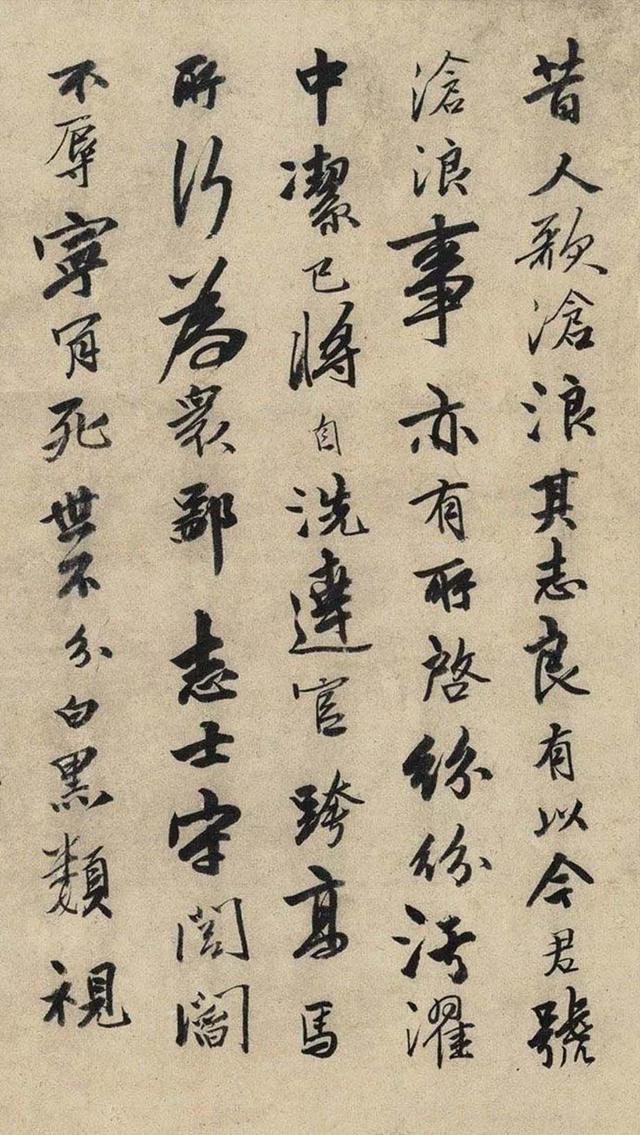 昔人歌滄浪其志良有以今君號
滄浪事亦有所啓紛紛汚濯
中潔已將自洗達官跨高馬
所行為衆鄙志士守閭閻
不辱寧肎死世不分白黒類視